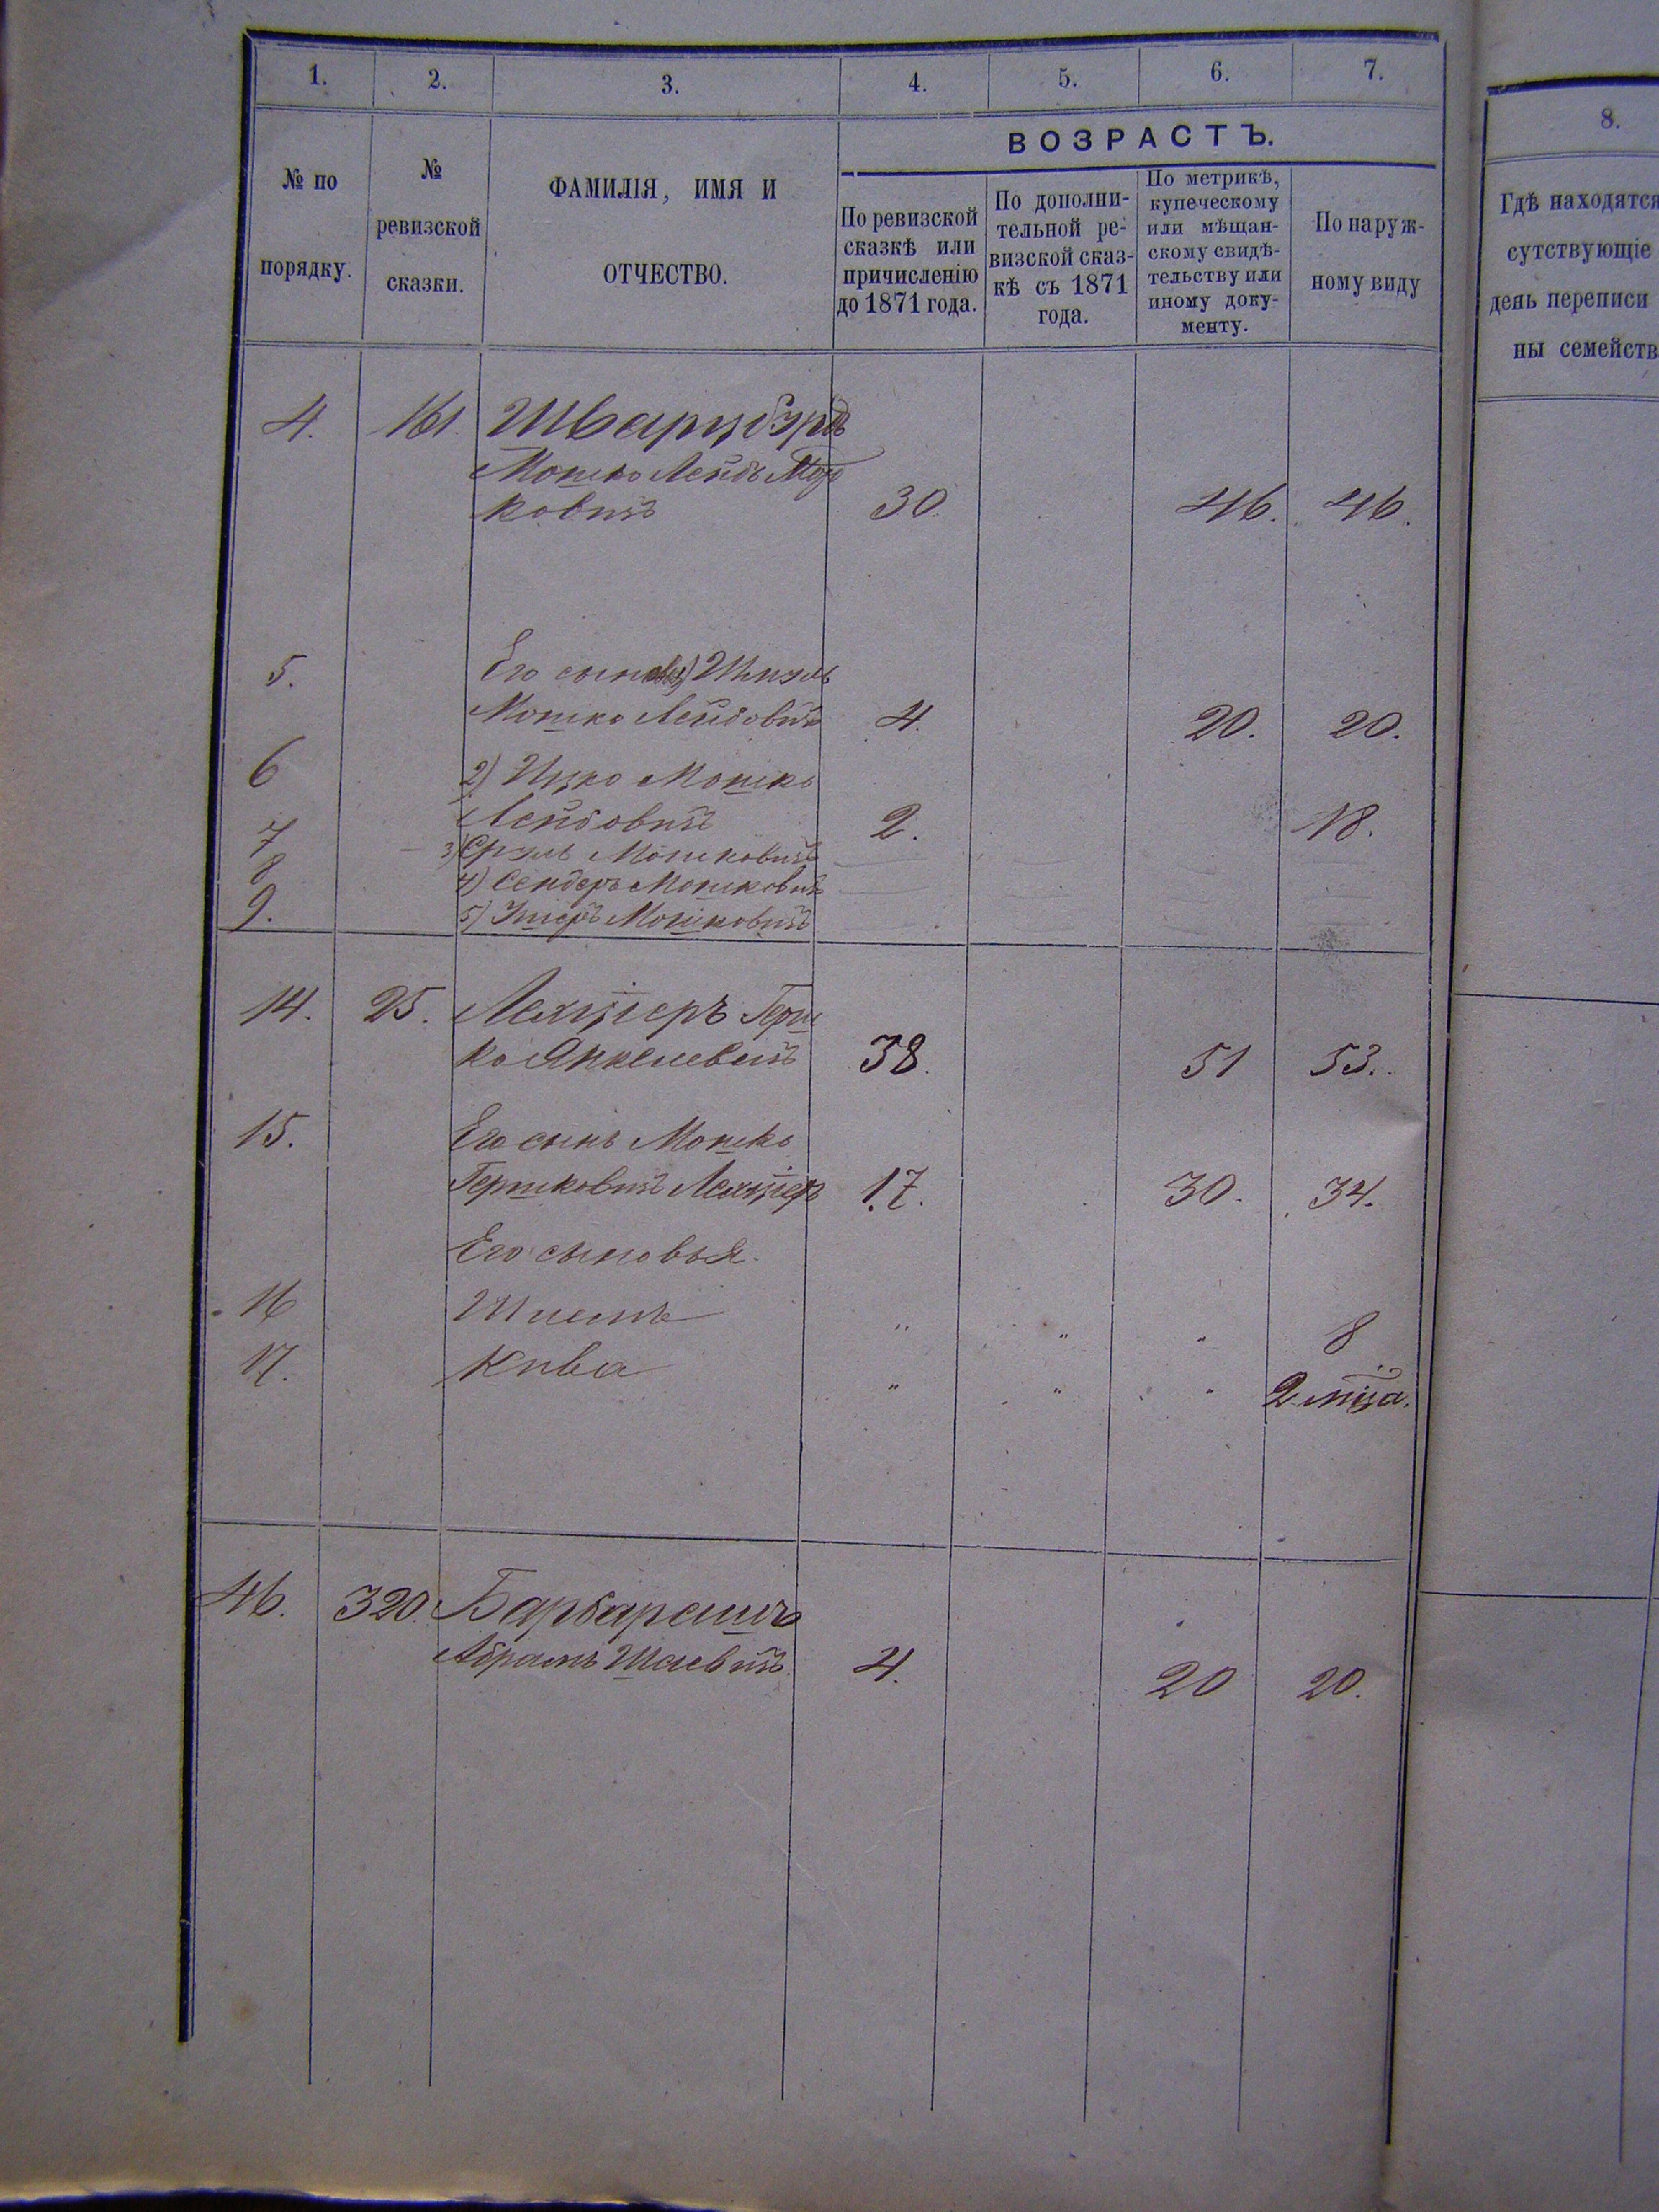 1. 2. 3. 4. 5. 6. 7.
8.
ВОЗРАСТЪ.
№ по
порядку.
№
ревизской
сказки.
ФАМИЛІЯ, ИМЯ И
ОТЧЕСТВО.
По ревизской
сказкѣ или
причисленію
до 1871 года.
По дополни-
тельной ре-
визской сказ-
кѣ съ 1871
года.
По метрикѣ,
купеческому
или мѣщан-
скому свидѣ-
тельству или
иному доку-
менту.
По наруж-
ному виду
Гдѣ находятся
сутствующіе
день переписи
ны семейств
4. 161. Шварцбурдъ
Мошко Лейбъ Мор
ковичъ 30. 46. 46.
5. Его сыновья 1)
Мошко Лейбовичъ 4. 20. 20.
6 2) Ицко Мошко
Лейбовичъ 2. 18.
7 3) Сруль Мошковичъ
8 4) Сендеръ Мошковичъ
9. 5) Мошковичъ
14. 25. Лехціеръ Герш
ко Янкелевичъ 38. 51 53.
15. Его сынъ Мошко
Гершковичъ Лехціеръ 17. 30. 34.
Его сыновья.
16 „ „ „ 8
17. Кива „ „ „ 2 мца.
46. 320. Барбарашъ
Абрамъ Шаевичъ 4. 20 20.